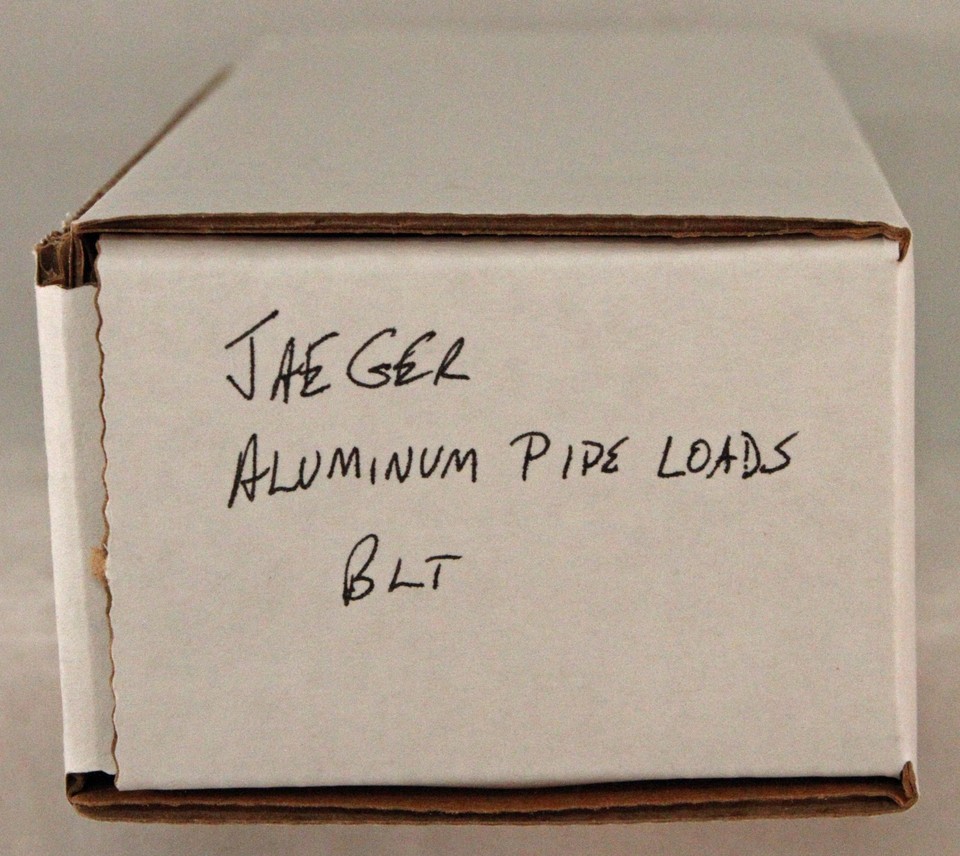 JAEGER
ALUMINUM PIPE LOADS
BLT